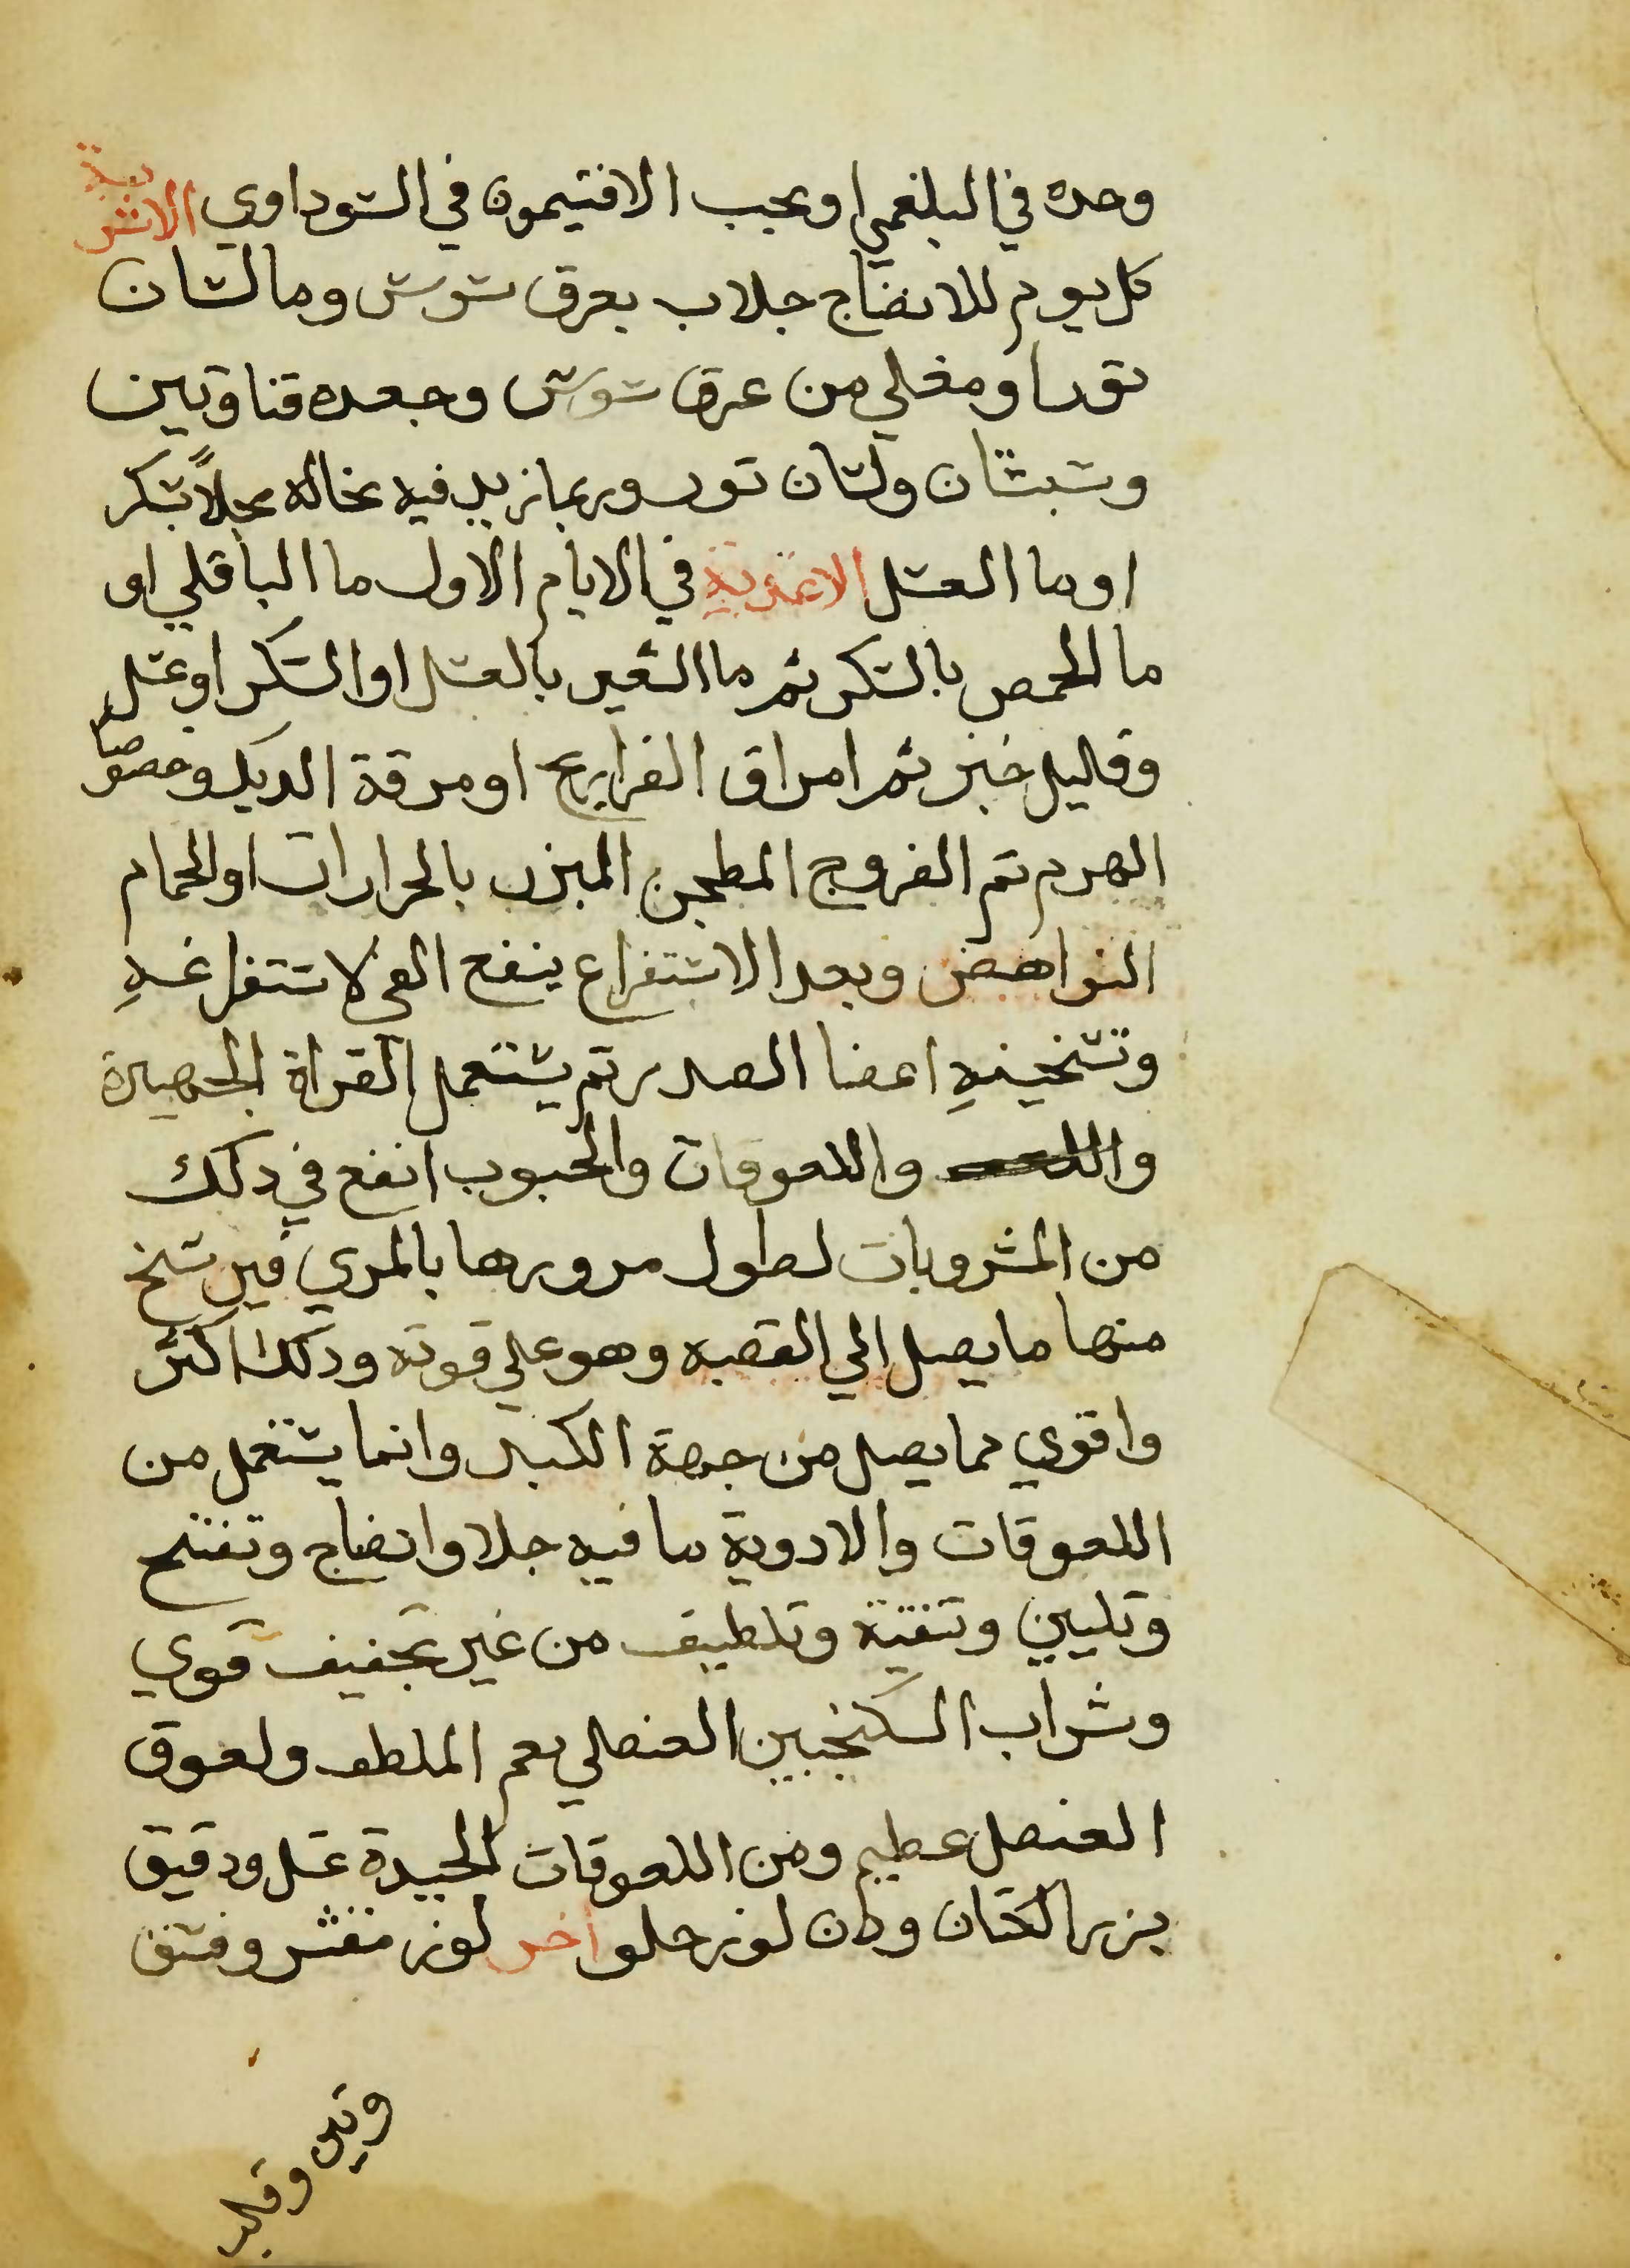 وحده في البلغمي او بحب الافتيمون في السوداوي الاشربة
كل يوم للانضاج جلاب بعرق سوس وما لسان
ثور او مغلي من عرق سوس وجعده قناوتين
وسبستان ولسان ثور وربما زيد فيه نخاله محلاً بسكر
او ما العسل الاغذية في الايام الاول ما الباقلي او
ما الحمص بالسكر ثم ما الشعير بالعسل او السكر او عسل
وقليل خبز ثم امراق الفراريج او مرقة الديك وخصوصا
الهرم ثم الفروج المطجن المبزر بالحرارات او الحمام
النواهض وبعد الاستفراغ ينفع القي لاستفراغهِ
وتسخينهِ اعضا الصدر ثم يستعمل القراة الجهيرة
واللعوقات والحبوب انفع في ذلك
من المشروبات لطول مرورها بالمري فيرشح
منها ما يصل الي القصبه وهو علي قوته وذلك اكثر
واقوي مما يصل من جهة الكبد وانما يستعمل من
اللعوقات والادوية ما فيه جلا وانضاج وتفتيح
وتليين وتنقية وتلطيف من غير تجفيف قوي
وشراب السكنجبين العنصلي نعم الملطف ولعوق
العنصل عظيم ومن اللعوقات الجيدة عسل ودقيق
بزر الكتان ودهن لوز حلو اخر لوز مقشر وفستق
وتين وقلب